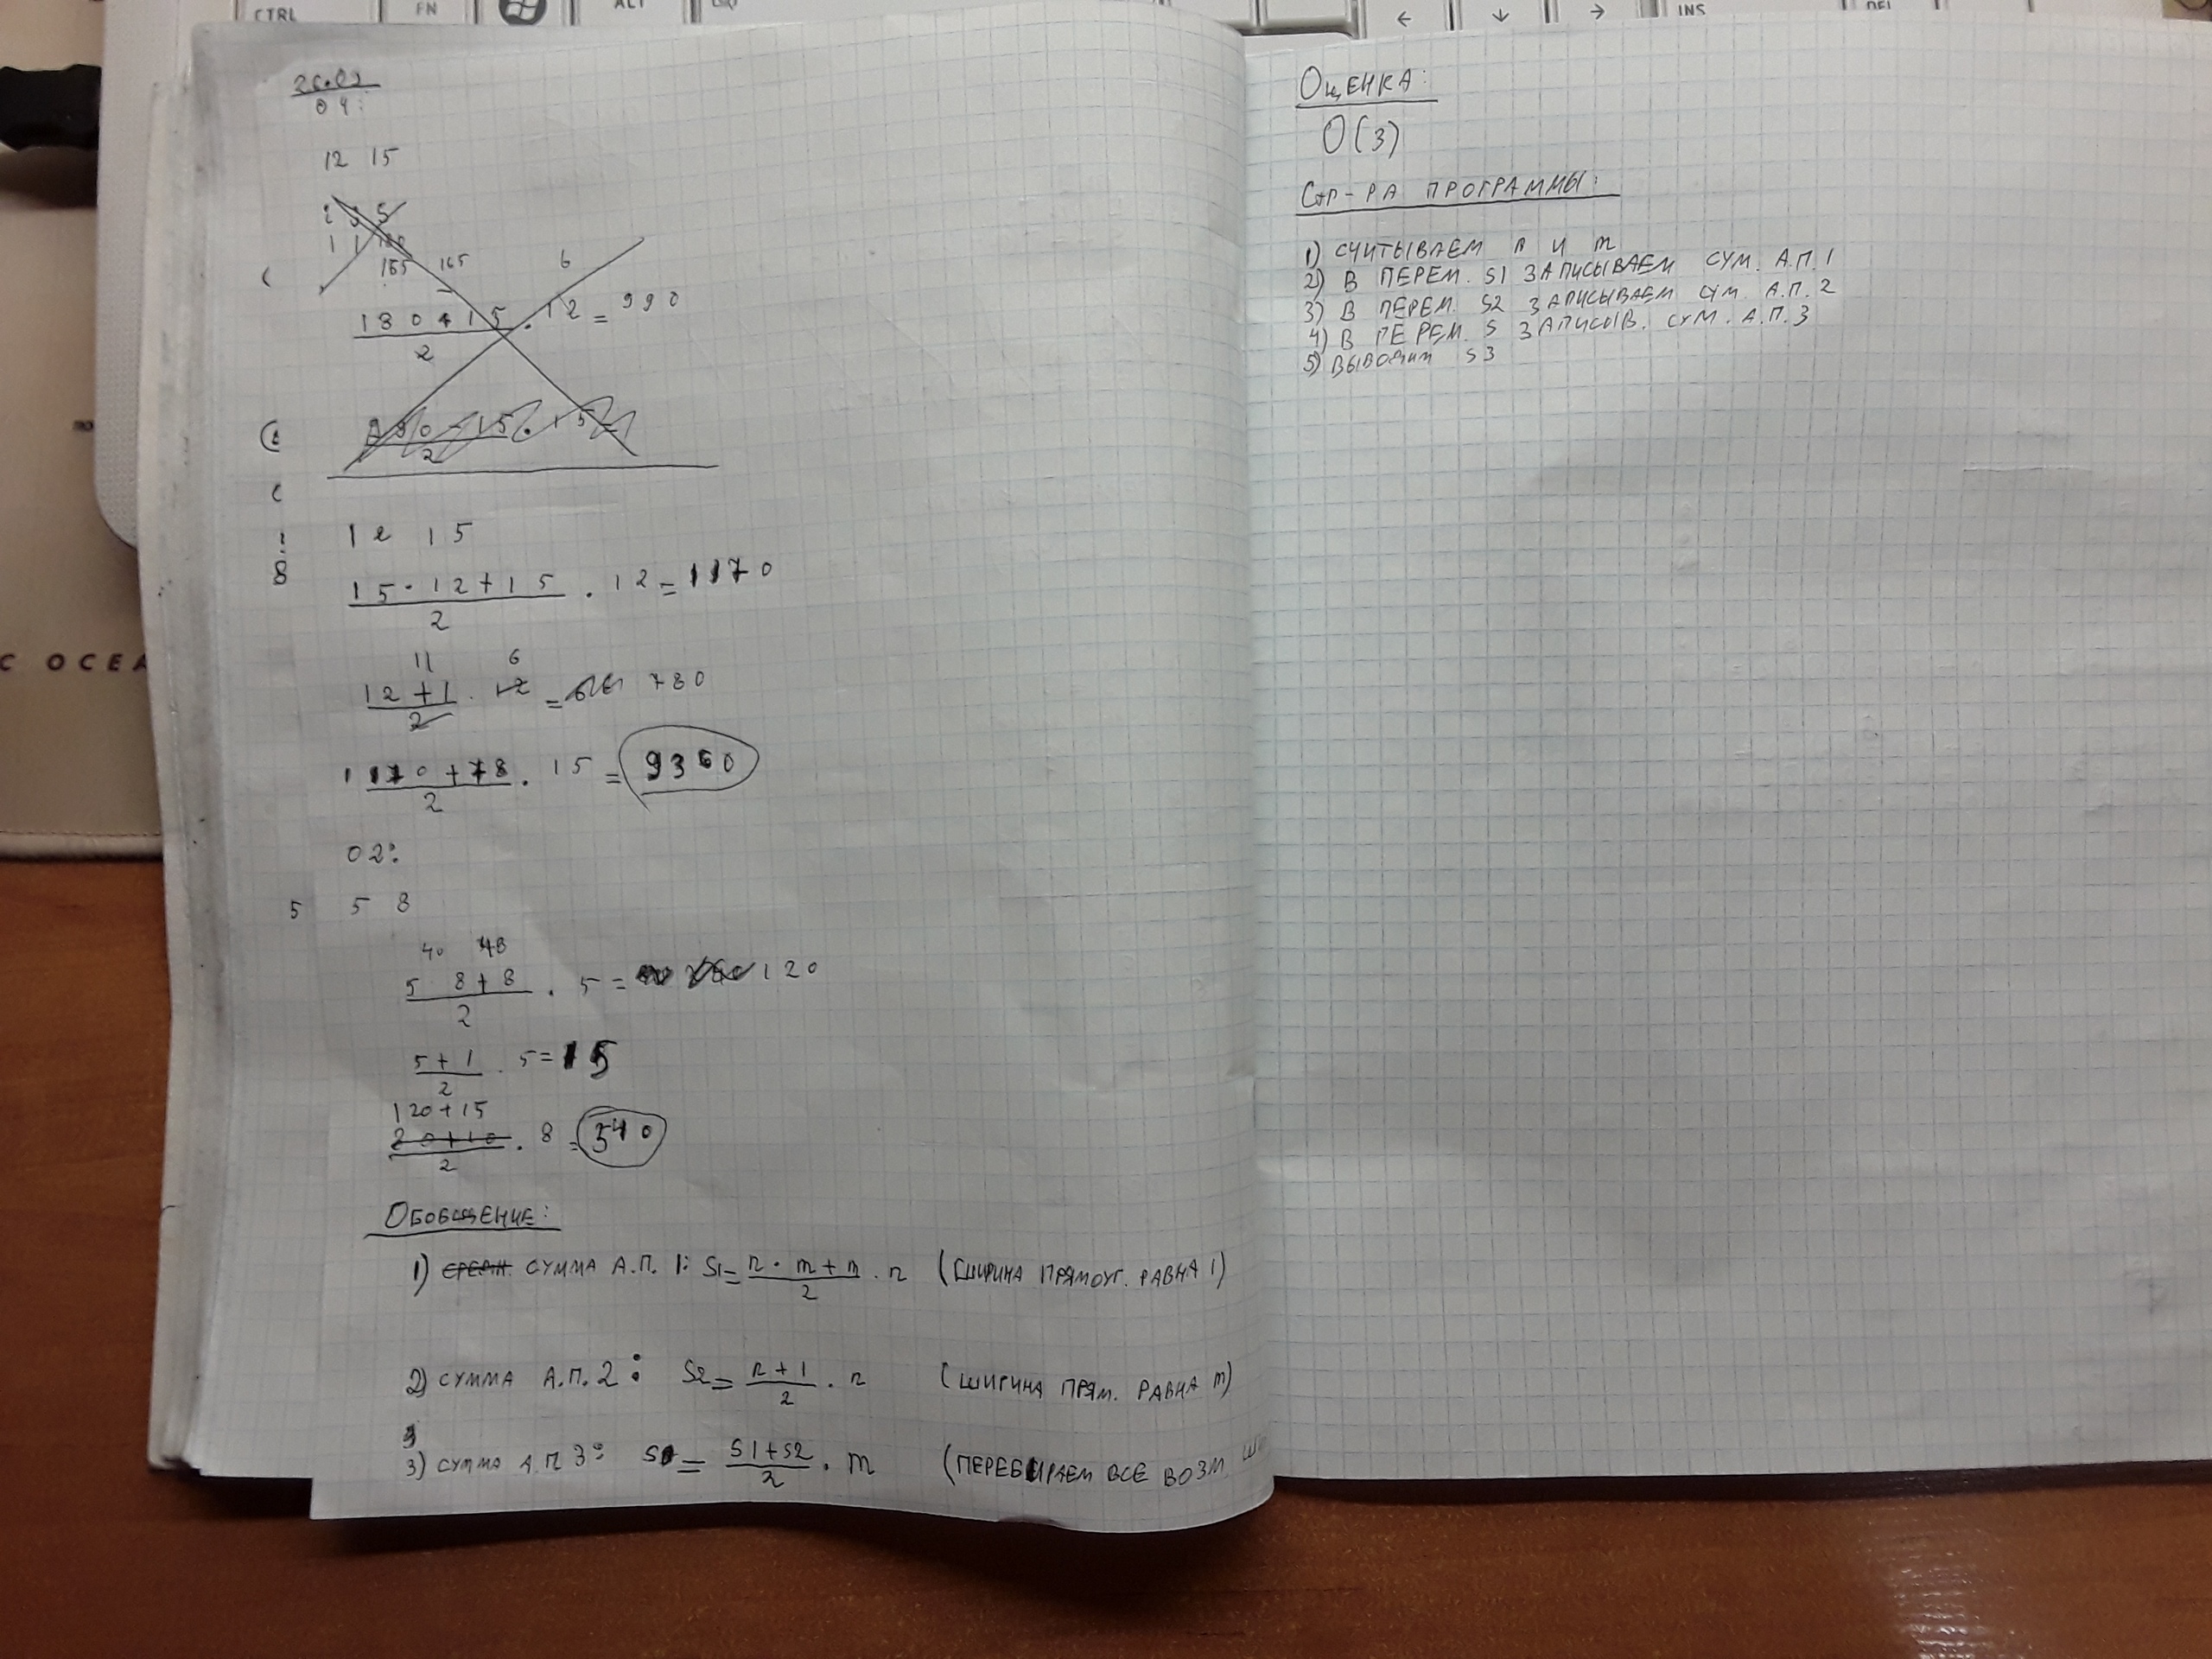 CTRL FN ALT INS
C OCEA
04:
12 15
2 3 5
1 1 180
165 165 6
180+15 · 12 = 990
2
2
12 15
15·12+15 · 12 = 1170
2
11 6
12+1 · 12 = 780
2
1170+78 · 15 = 9360
2
02:
5 5 8
40 48
5 8+8 · 5 = 120
2
5+1 · 5 = 15
2
120+15
20+10 · 8 = 540
2
ОБОБЩЕНИЕ:
1) СУММА А.П. 1: S1 = n·m+m · n (ШИРИНА ПРЯМОУГ. РАВНА 1)
2
2) СУММА А.П. 2: S2 = n+1 · n (ШИРИНА ПРЯМ. РАВНА m)
2
3) СУММА А.П 3: S = S1+S2 · m (ПЕРЕБИРАЕМ ВСЕ ВОЗМ.
2
ОЦЕНКА:
O(3)
СТР-РА ПРОГРАММЫ:
1) СЧИТЫВАЕМ n И m
2) В ПЕРЕМ. S1 ЗАПИСЫВАЕМ СУМ. А.П. 1
3) В ПЕРЕМ. S2 ЗАПИСЫВАЕМ СУМ. А.П. 2
4) В ПЕРЕМ. S ЗАПИСЫВ. СУМ. А.П. 3
5) ВЫВОДИМ S3